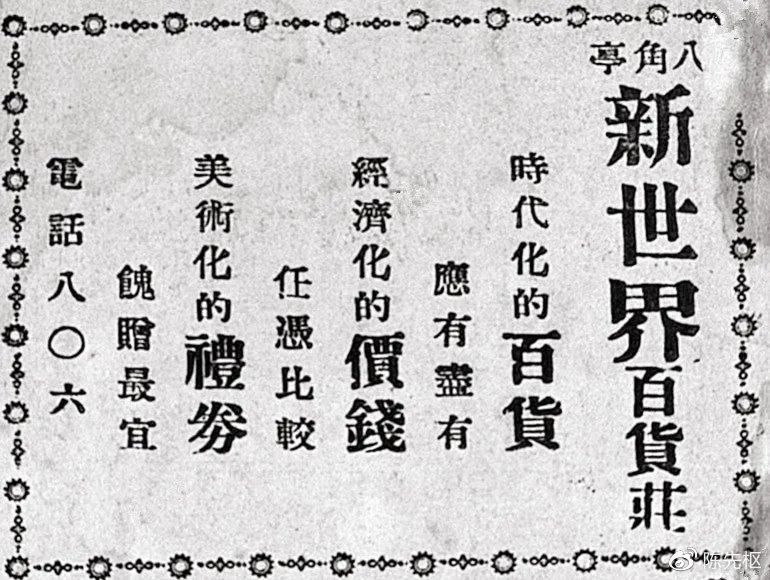 八角亭
新世界百貨莊
時代化的百貨
應有盡有
經濟化的價錢
任憑比較
美術化的禮券
餽贈最宜
電話八〇六
陈先枢